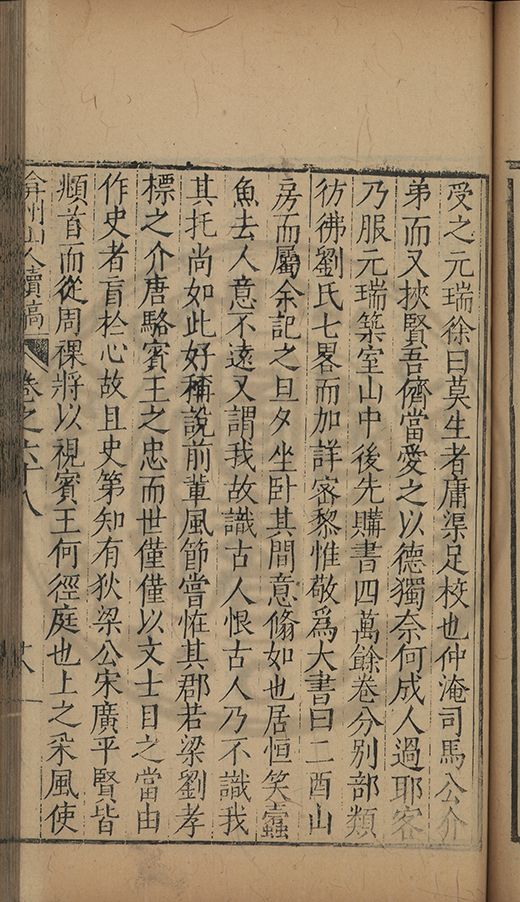 受之元瑞徐曰莫生者庸渠足校也仲淹司馬公介
弟而又挾賢吾儕當愛之以德獨奈何成人過耶客
乃服元瑞築室山中後先購書四萬餘卷分別部類
彷彿劉氏七畧而加詳宻黎惟敬爲大書曰二酉山
房而屬余記之旦夕坐卧其間意翛如也居恒笑蠹
魚去人意不遠又謂我故識古人恨古人乃不識我
其托尚如此好稱說前軰風節嘗恠其郡若梁劉孝
標之介唐駱賓王之忠而世僅僅以文士目之當由
作史者盲於心故且史第知有狄梁公宋廣平賢皆
頫首而從周祼將以視賓王何徑庭也上之采風使
弇州山人續稿 卷之六十八